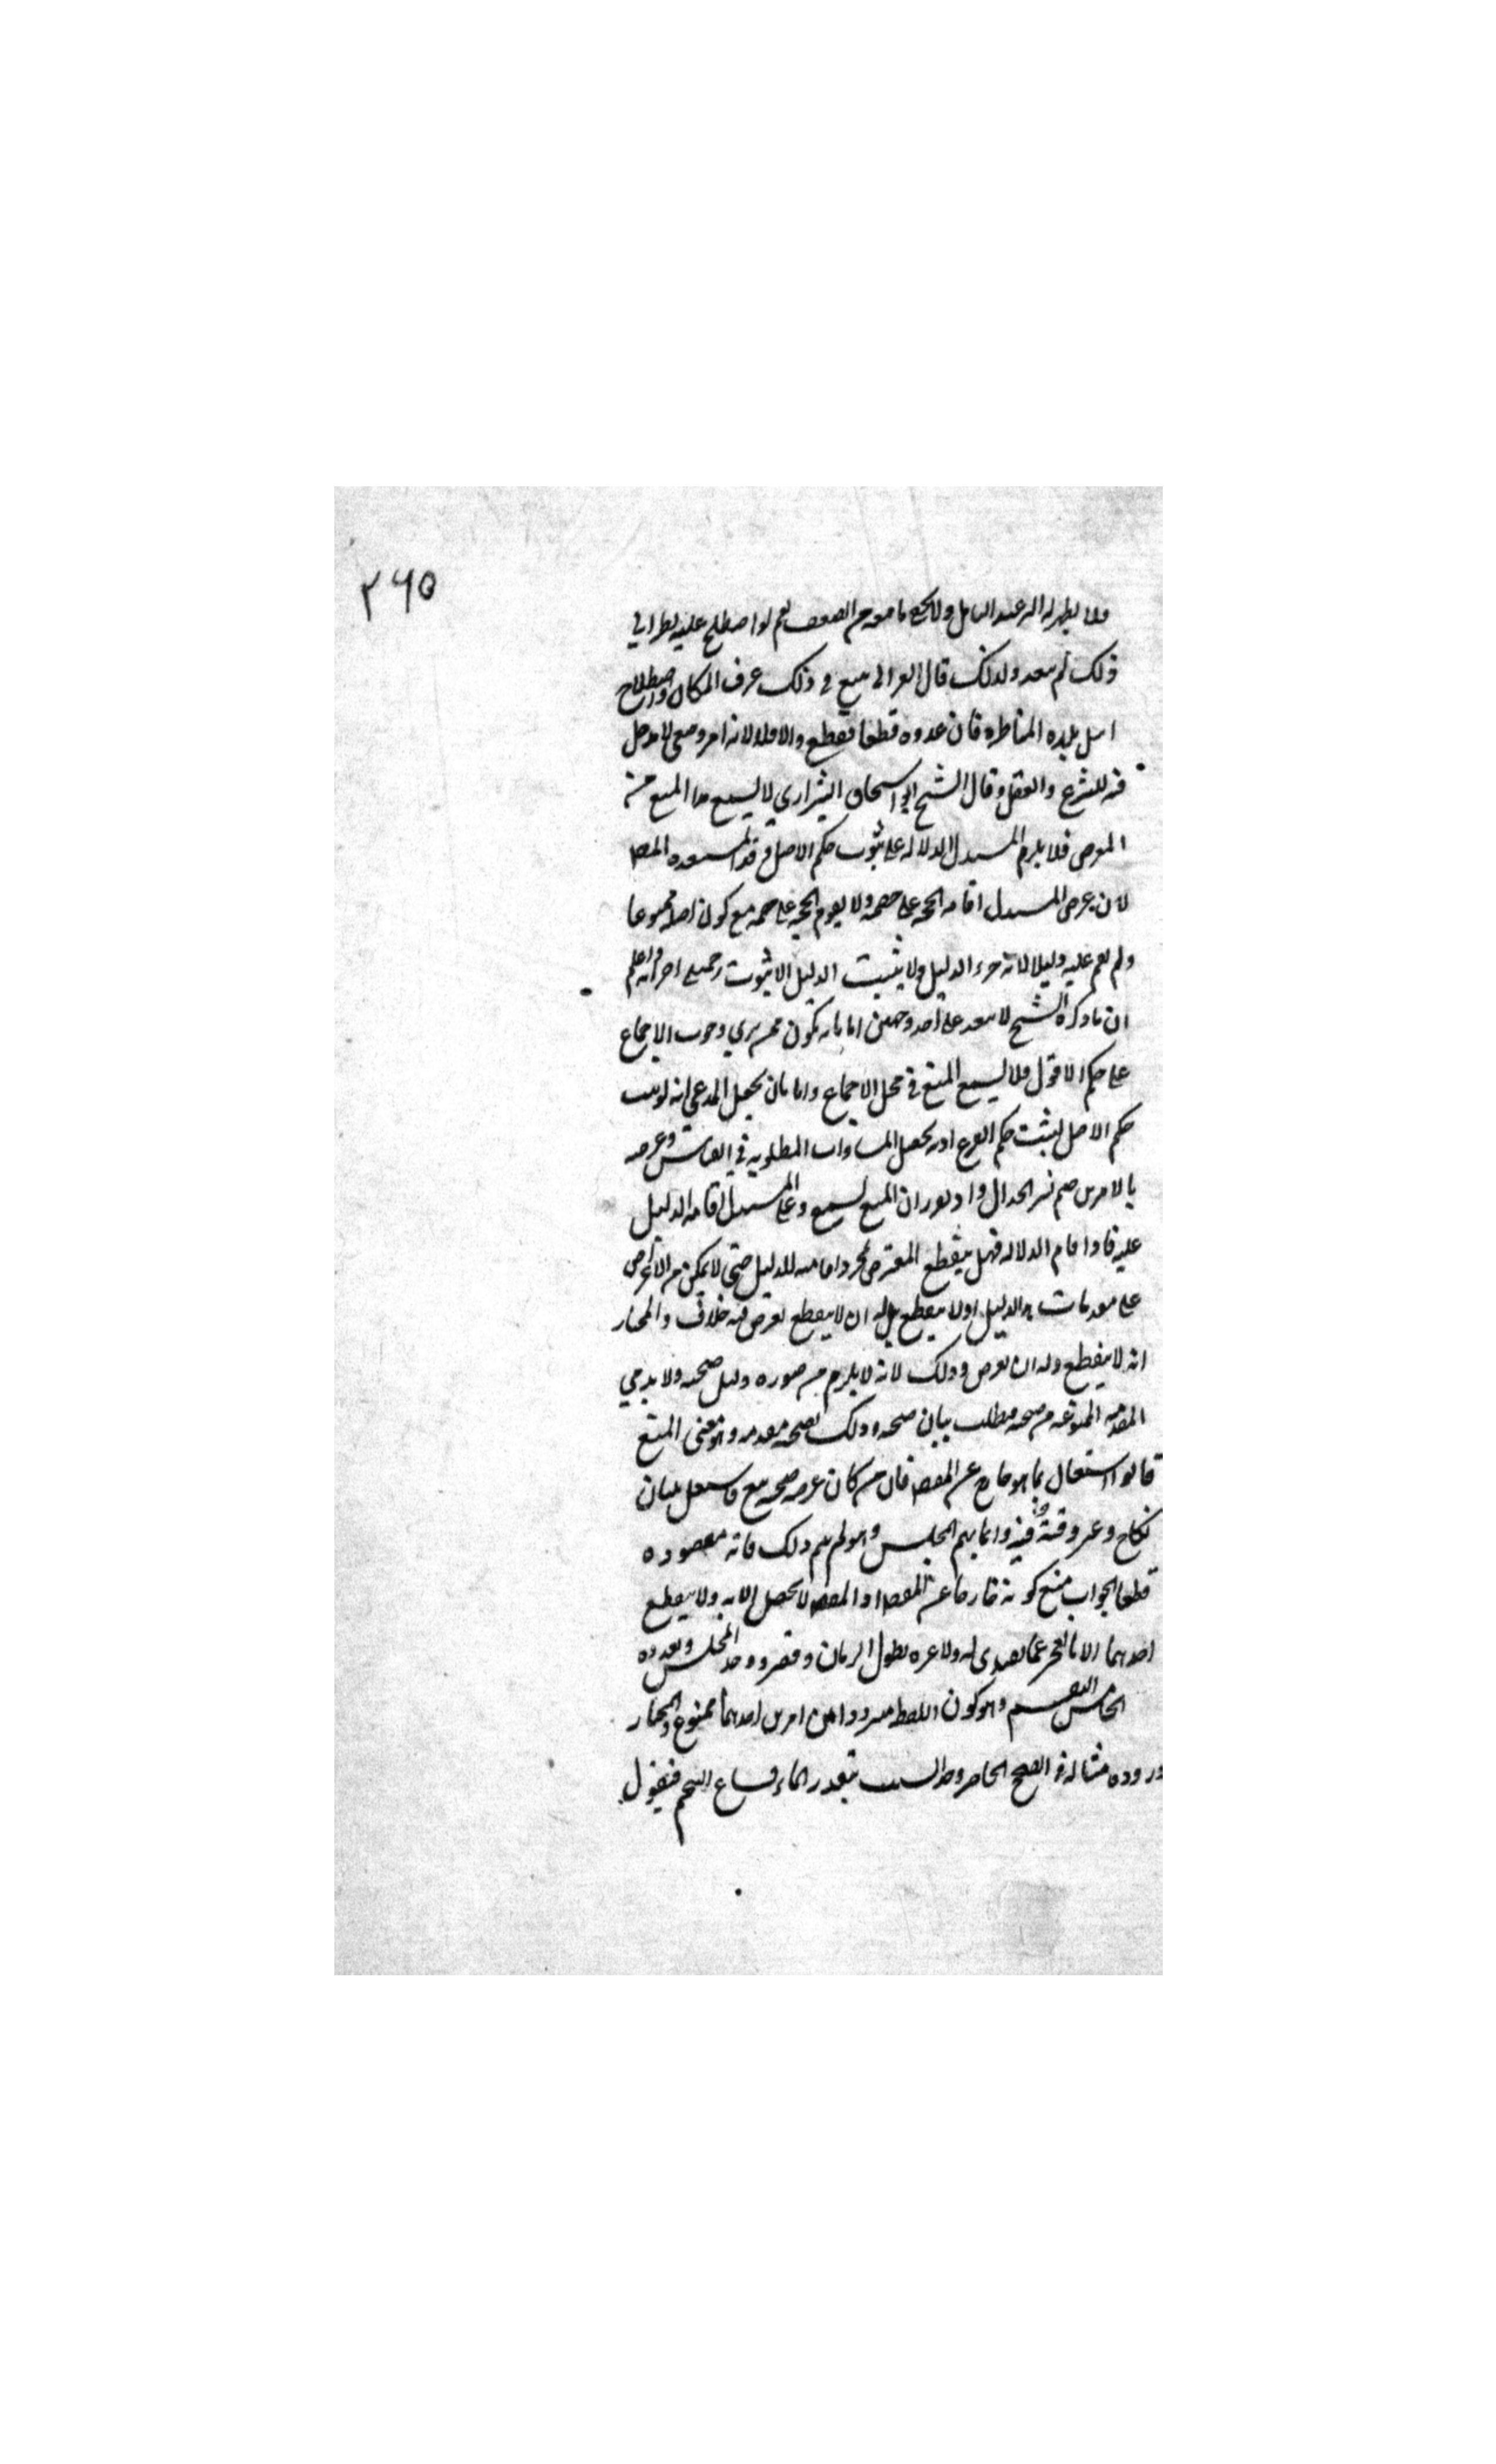 ٢٦٥
فلا يظهر له اثر عند التامل ولا يخفى ما فيه من الضعف نعم لو اصطلح عليه نظرا الى
ذلك لم يبعد ولذلك قال الغزالي يتبع في ذلك عرف المكان واصطلاح
اهل بلدة المناظرة فان عدوه قطعا فقطع والا فلا لانه امر وضعي لا مدخل
فيه للشرع والعقل وقال الشيخ ابو اسحاق الشيرازي لا يسمع هذا المنع من
المعترض فلا يلزم المستدل الدلالة على ثبوت حكم الاصل وقد استبعده المص
لان غرض المستدل اقامة الحجة على خصمه ولا يقوم الحجة على خصمه مع كون اصله ممنوعا
ولم يقم عليه دليلا لانه جزء الدليل ولا يثبت الدليل الا بثبوت جميع اجزائه واعلم
ان ما ذكره الشيخ لا يبعد على احد وجهين اما بان يكون ممن يرى وجوب الاجماع
على حكم الاصل فلا يسمع المنع في محل الاجماع واما بان يجعل المدعى انه لو ثبت
حكم الاصل لثبت حكم الفرع اذ يحصل المساواة المطلوبة في القياس وغرضه
بالامرين ضم نشر الجدال واذ تقرر ان المنع يسمع وعلى المستدل اقامة الدليل
عليه فاذا اقام الدلالة فهل ينقطع المعترض بمجرد اقامته للدليل حتى لا يمكن من الاعتراض
على مقدمات الدليل اولا ينقطع بل له ان لا ينقطع يعترض فيه خلاف والمختار
انه لا ينقطع وله ان يعترض وذلك لانه لا يلزم من صورة دليل صحته ولا بد في
المقدمة الممنوعة من صحة فيطلب بيان صحته وذلك بصحة مقدمة وهو معنى المنع
قالوا اشتغال بما هو خارج عن المقصود فان من كان غرضه صحة بيع فاشتغل ببيان
نكاح وعرف وقته فيه وانما يهم المجلس وهو لم يتم ذلك فاته مقصوده
قطعا الجواب منع كونه خارجا عن المقصود اذ المقصود لا يحصل الا به ولا ينقطع
احدهما الا بالعجز عما تصدى له ولا عبرة بطول الزمان وقصره ووحدة المجلس وتعدده
الخامس التقسيم وهو كون اللفظ مترددا بين امرين احدهما ممنوع والمختار
وروده مثاله في الصحيح الحاضر وجد السبب بتعذر الماء فساغ التيمم فيقول